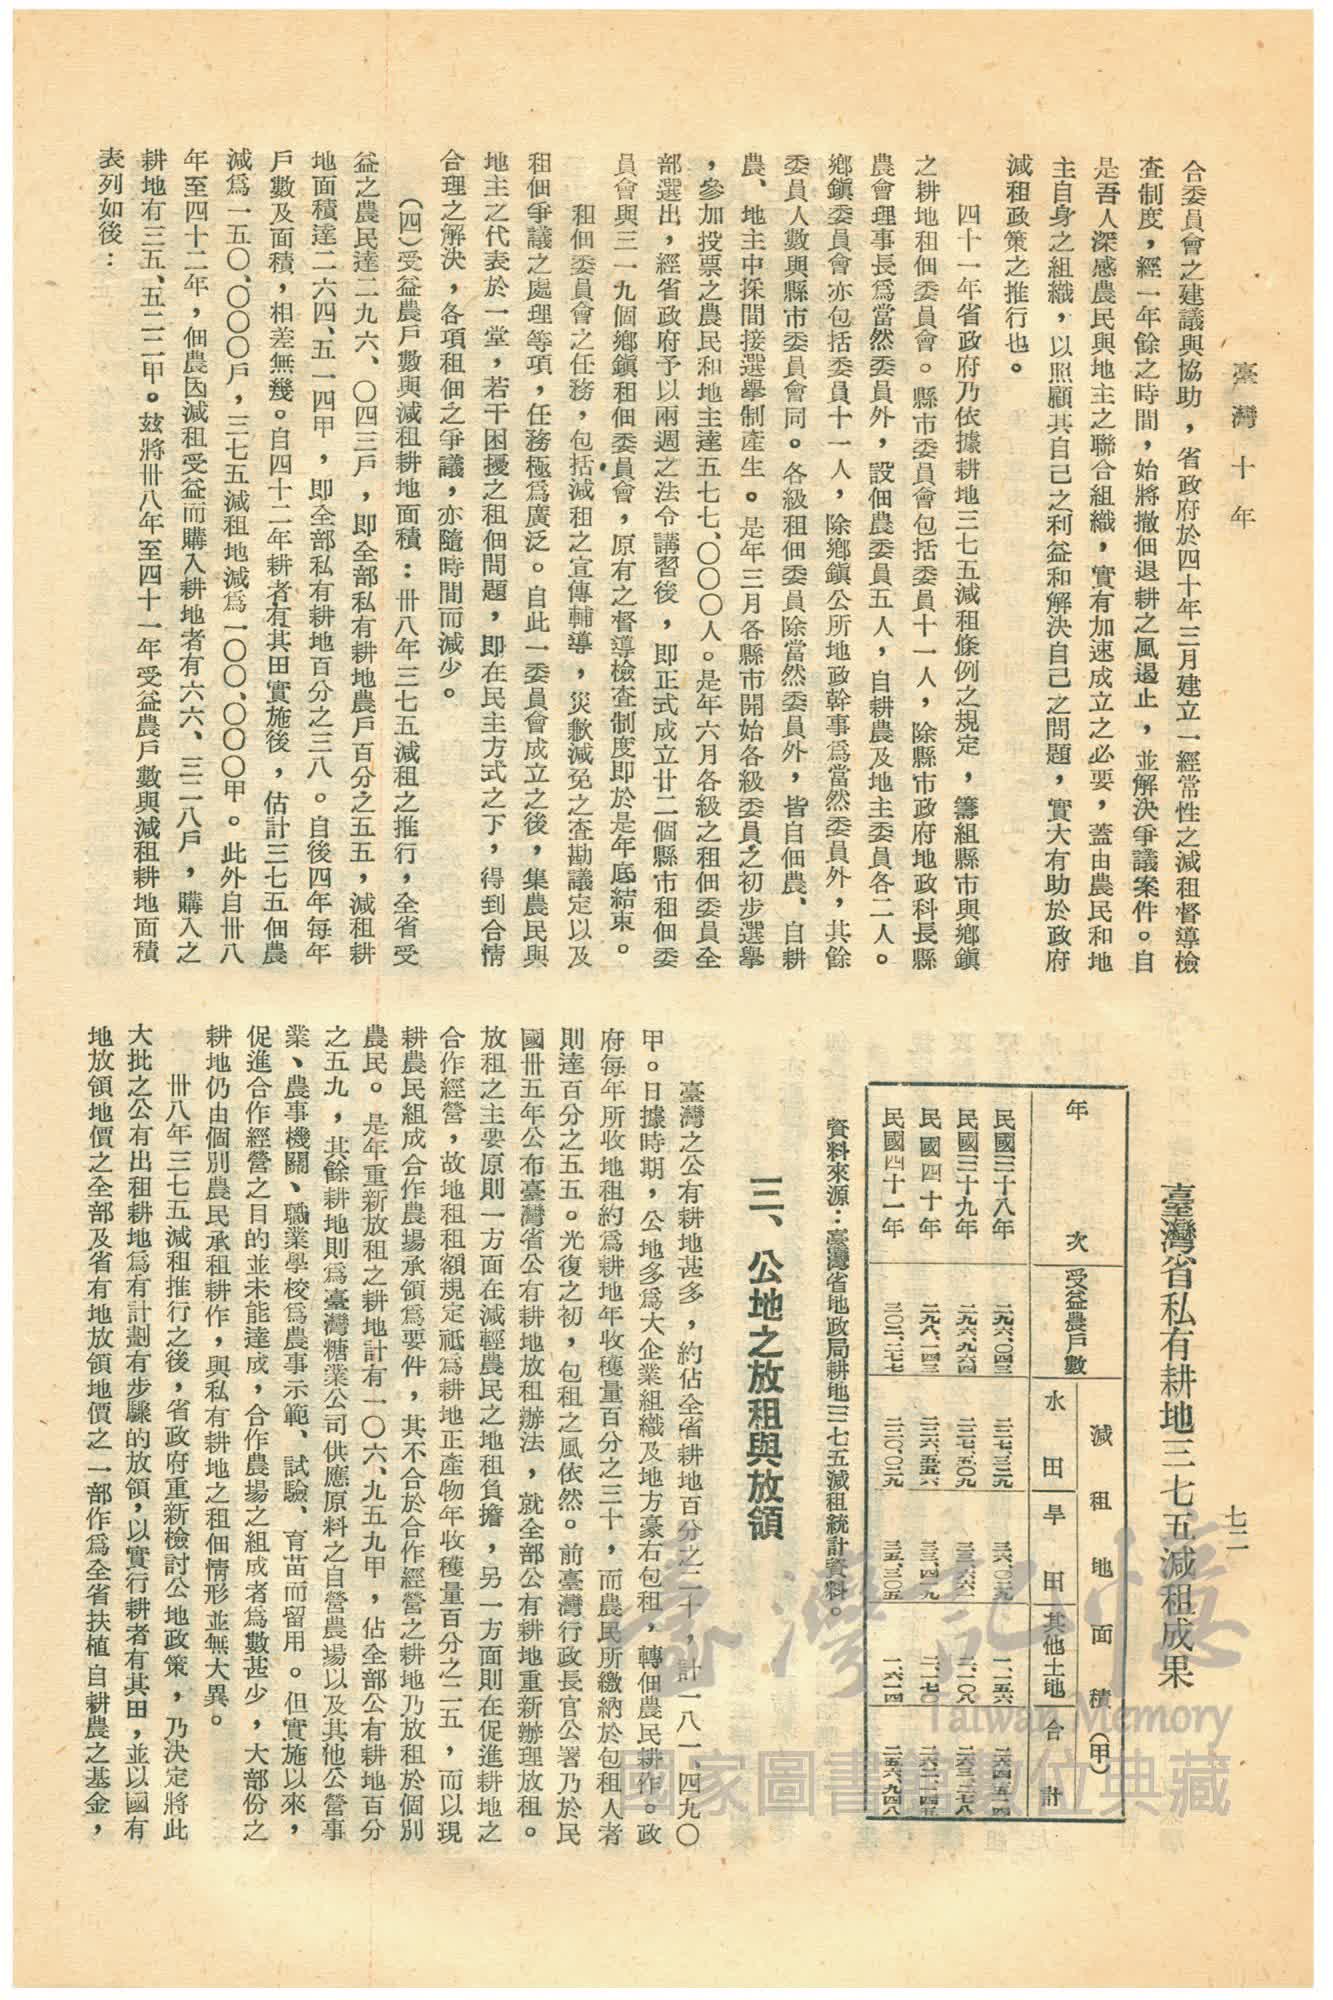 臺灣十年
七二
合委員會之建議與協助，省政府於四十年三月建立一經常性之減租督導檢
查制度，經一年餘之時間，始將撤佃退耕之風遏止，並解決爭議案件。自
是吾人深感農民與地主之聯合組織，實有加速成立之必要，蓋由農民和地
主自身之組織，以照顧其自己之利益和解決自己之問題，實大有助於政府
減租政策之推行也。
四十一年省政府乃依據耕地三七五減租條例之規定，籌組縣市與鄉鎮
之耕地租佃委員會。縣市委員會包括委員十一人，除縣市政府地政科長縣
農會理事長為當然委員外，設佃農委員五人，自耕農及地主委員各二人。
鄉鎮委員會亦包括委員十一人，除鄉鎮公所地政幹事為當然委員外，其餘
委員人數與縣市委員會同。各級租佃委員除當然委員外，皆自佃農、自耕
農、地主中採間接選舉制產生。是年三月各縣市開始各級委員之初步選舉
，參加投票之農民和地主達五七七、〇〇〇人。是年六月各級之租佃委員全
部選出，經省政府予以兩週之法令講習後，即正式成立廿二個縣市租佃委
員會與三一九個鄉鎮租佃委員會，原有之督導檢查制度即於是年底結束。
租佃委員會之任務，包括減租之宣傳輔導，災歉減免之查勘議定以及
租佃爭議之處理等項，任務極為廣泛。自此一委員會成立之後，集農民與
地主之代表於一堂，若干困擾之租佃問題，即在民主方式之下，得到合情
合理之解決，各項租佃之爭議，亦隨時間而減少。
（四）受益農戶數與減租耕地面積：卅八年三七五減租之推行，全省受
益之農民達二九六、〇四三戶，即全部私有耕地農戶百分之五五，減租耕
地面積達二六四、五一四甲，即全部私有耕地百分之三八。自後四年每年
戶數及面積，相差無幾。自四十二年耕者有其田實施後，估計三七五佃農
減為一五〇、〇〇〇戶，三七五減租地減為一〇〇、〇〇〇甲。此外自卅八
年至四十二年，佃農因減租受益而購入耕地者有六六、三二八戶，購入之
耕地有三五、五二二甲。茲將卅八年至四十一年受益農戶數與減租耕地面積
表列如後：
臺灣省私有耕地三七五減租成果
年次 受益農戶數 減租地面積（甲）
水田 旱田 其他土地 合計
民國三十八年 二九六、〇四三
民國三十九年 二九六、九六四
民國四十年 二九八、一四三
民國四十一年 三〇二、二七七
資料來源：臺灣省地政局耕地三七五減租統計資料。
三、公地之放租與放領
臺灣之公有耕地甚多，約佔全省耕地百分之二十，計一八一、四九〇
甲。日據時期，公地多為大企業組織及地方豪右包租，轉佃農民耕作。政
府每年所收地租約為耕地年收穫量百分之三十，而農民所繳納於包租人者
則達百分之五五。光復之初，包租之風依然。前臺灣行政長官公署乃於民
國卅五年公布臺灣省公有耕地放租辦法，就全部公有耕地重新辦理放租。
放租之主要原則一方面在減輕農民之地租負擔，另一方面則在促進耕地之
合作經營，故地租租額規定祗為耕地正產物年收穫量百分之二五，而以現
耕農民組成合作農場承領為要件，其不合於合作經營之耕地乃放租於個別
農民。是年重新放租之耕地計有一〇六、九五九甲，佔全部公有耕地百分
之五九，其餘耕地則為臺灣糖業公司供應原料之自營農場以及其他公營事
業、農事機關、職業學校為農事示範、試驗、育苗而留用。但實施以來，
促進合作經營之目的並未能達成，合作農場之組成者為數甚少，大部份之
耕地仍由個別農民承租耕作，與私有耕地之租佃情形並無大異。
卅八年三七五減租推行之後，省政府重新檢討公地政策，乃決定將此
大批之公有出租耕地為有計劃有步驟的放領，以實行耕者有其田，並以國有
地放領地價之全部及省有地放領地價之一部作為全省扶植自耕農之基金，
臺灣記憶
Taiwan Memory
國家圖書館數位典藏